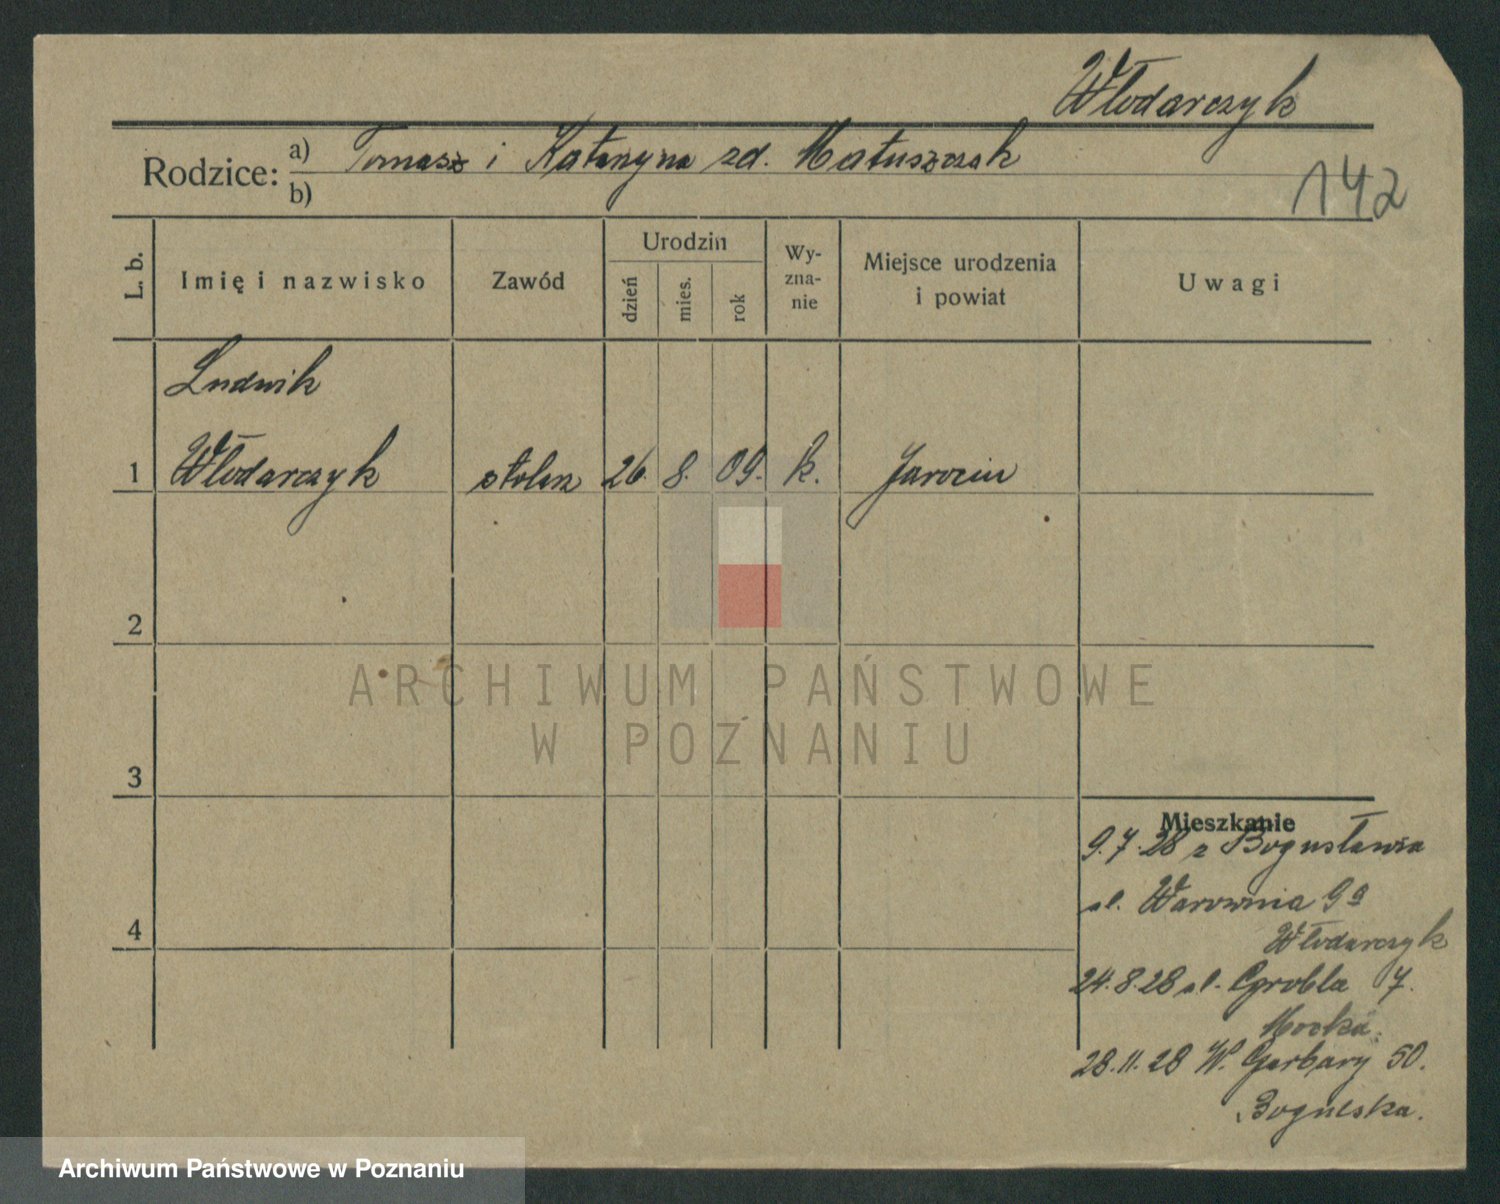 Włodarczyk
Rodzice: a) Tomasz i Katarzyna zd. Matuszczak
b)
142
L. b.
Imię i nazwisko
Zawód
Urodzin
dzień
mies.
rok
Wy-
zna-
nie
Miejsce urodzenia
i powiat
Uwagi
Ludwik
1 Włodarczyk stolarz 26. 8. 09. k. Jarocin
2
3
4
Mieszkanie
9.7.28 z Bogusławia
ul. Warownia 9a
Włodarczyk
24.8.28 ul. Grobla 7.
28.11.28 W. Garbary 50.
ARCHIWUM PAŃSTWOWE
W POZNANIU
Archiwum Państwowe w Poznaniu